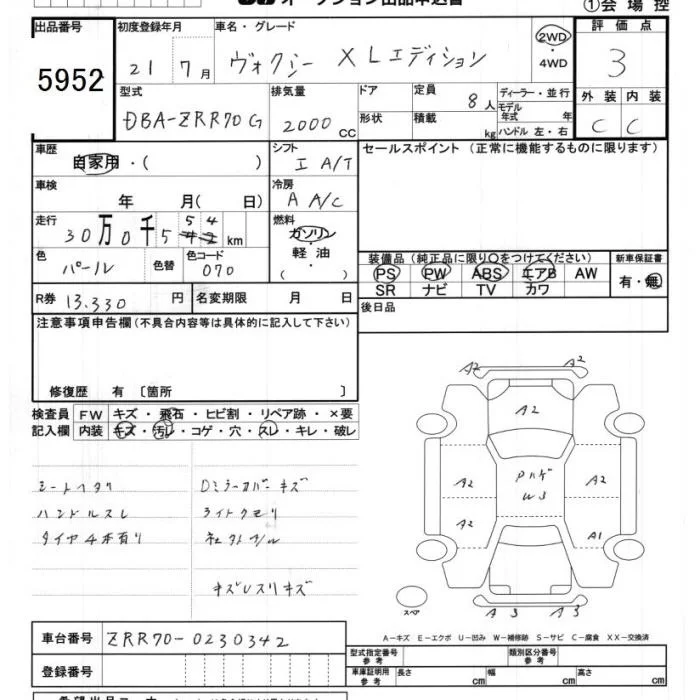 ①会場控
出品番号 初度登録年月 車名・グレード 評価点
5952 21 7月 ヴォクシー XLエディション 2WD ・ 4WD 3
型式 排気量 ドア 定員 8人 ディーラー・並行 外装 内装
DBA-ZRR70G 2000cc 形状 積載 kg モデル年式 年 ハンドル 左・右 C C
車歴 シフト セールスポイント(正常に機能するものに限ります)
自家用・( ) I A/T
車検 冷房
年 月( 日) A A/C
走行 30万0千554 42km 燃料 ガソリン・軽油・( )
色 パール 色替 色コード 070
装備品(純正品に限り○をつけてください) 新車保証書
PS PW ABS エアB AW 有・無
SR ナビ TV カワ
R券 13,330円 名変期限 月 日
後日品
注意事項申告欄(不具合内容等は具体的に記入して下さい)
修復歴 有〔箇所 〕
検査員 FW キズ・飛石・ヒビ割・リペア跡・×要
記入欄 内装 キズ・汚レ・コゲ・穴・スレ・キレ・破レ
シートヘタリ Dミラーカバーキズ
ハンドルスレ ライトクモリ
タイヤ4本有り
A2 A2
A2
Pハゲ
W3
A2 A2
A2 A1
スペア
A3 A3
A-キズ E-エクボ U-凹み W-補修跡 S-サビ C-腐食 XX-交換済
車台番号 ZRR70-0230342
型式指定番号 参考 類別区分番号 参考
登録番号 車庫証明用 参考 長さ cm 幅 cm 高さ cm